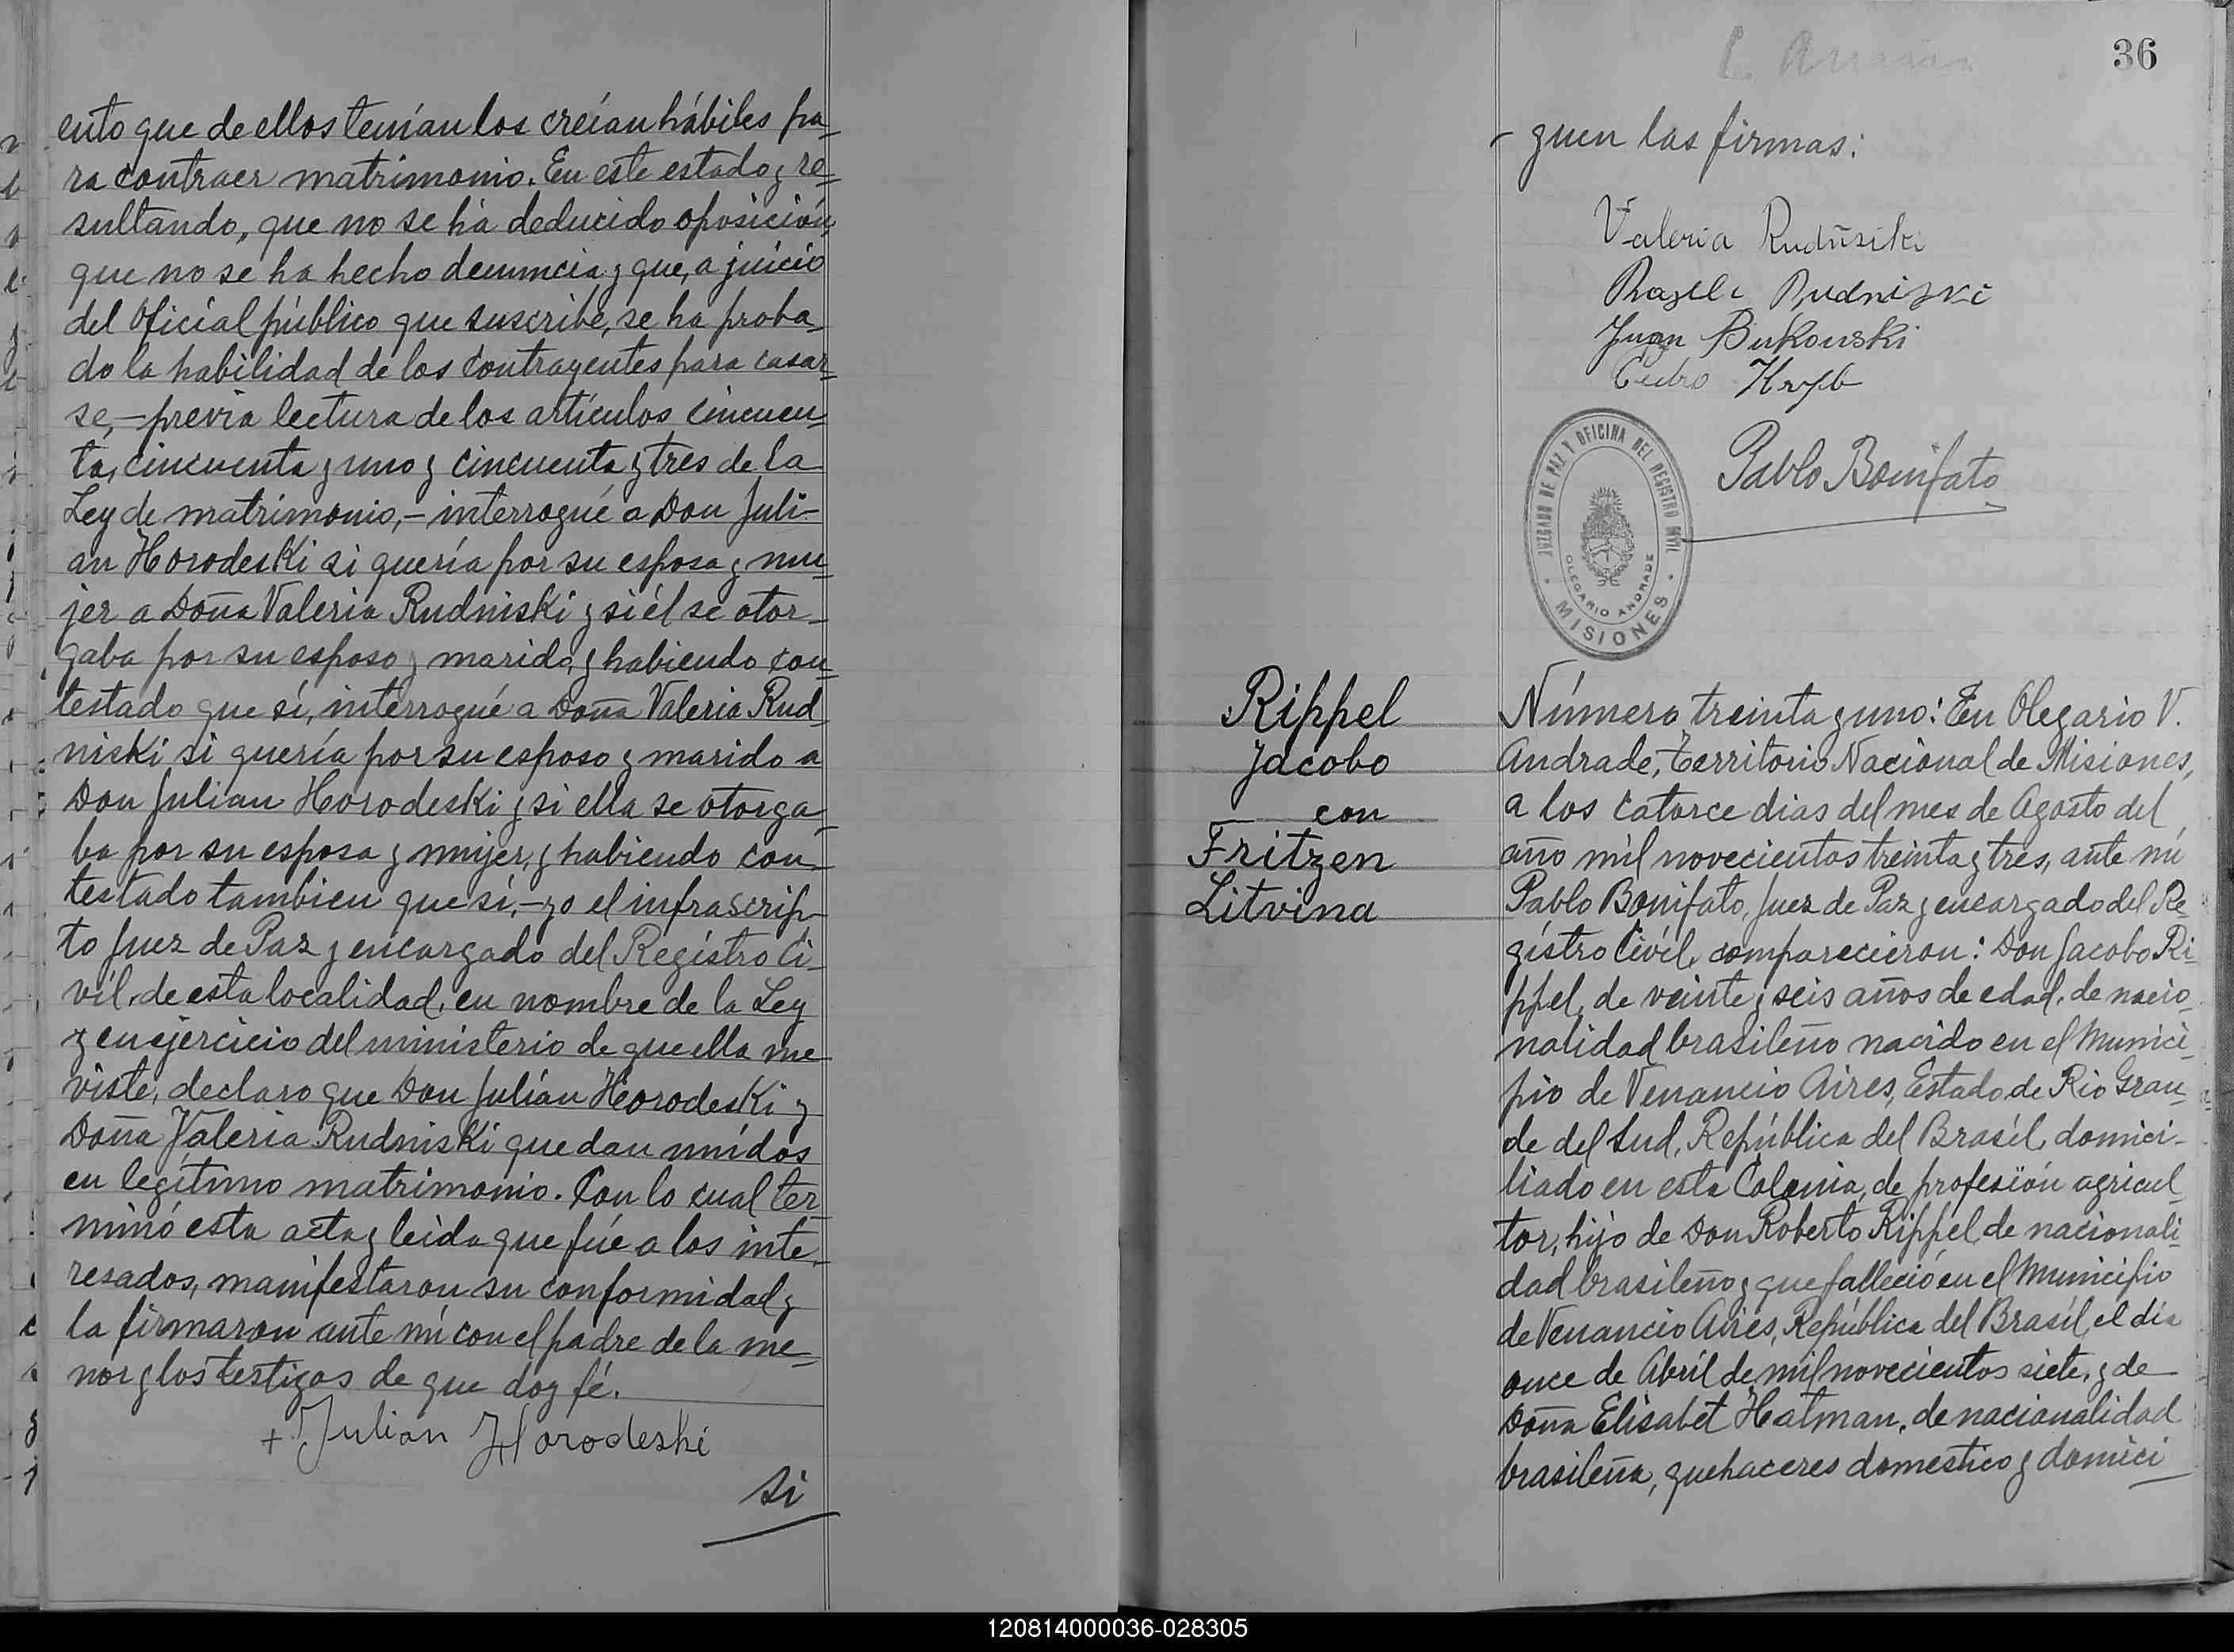 ento que de ellos tenían los creían hábiles pa-
ra contraer matrimonio. En este estado y re-
sultando, que no se ha deducido oposición,
que no se ha hecho denuncia y que, a juício
del Oficial público que suscribe, se ha proba-
do la habilidad de los contrayentes para casar-
se,- previa lectura de los artículos cincuen-
ta, cincuenta y uno y cincuenta y tres de la
Ley de matrimonio,- interrogué a Don Juli-
an Horodeski si quería por su esposa y mu-
jer a Doña Valeria Rudniski y si él se otor-
gaba por su esposo y marido, y habiendo con-
testado que sí, interrogué a Doña Valeria Rud
niski si quería por su esposo y marido a
Don Julian Horodeski y si ella se otorga-
ba por su esposa y mujer, y habiendo con-
testado tambien que sí,- yo el infrascrip-
to Juez de Paz y encargado del Regístro Ci-
víl, de esta localidad, en nombre de la Ley
y en ejercicio del ministerio de que ella me
viste, declaro que Don Julián Horodeski y
Doña Valeria Rudniski quedan unídos
en legítimo matrimonio. Con lo cual ter
minó esta acta y leida que fúe a los inte-
resados, manifestaron su conformidad y
la firmaron ante mí con el padre de la me-
nor y los testigos de que doy fé.
+ Julian Horodeski
si
36
- guen las firmas:
Valeria Rudñsiki
Rudniski
Juan Bukowski
Pedro
Pablo Bonifato
JUZGADO DE PAZ Y OFICINA DEL REGISTRO CIVIL
OLEGARIO ANDRADE
MISIONES
Rippel
Jacobo
con
Fritzen
Litvina
Número treinta y uno: En Olegario V.
Andrade, Territorio Nacional de Misiones,
a los catorce dias del mes de Agosto del
año mil novecientos treinta y tres, ante mí
Pablo Bonifato, Juez de Paz y encargado del Re-
gístro Civíl, comparecieron: Don Jacobo Ri-
ppel, de veinte y seis años de edad, de nacio-
nalidad brasileño nacido en el Munici-
pio de Venancio Aires, Estado de Rio Gran-
de del Sud, República del Brasíl, domici-
liado en esta Colonia, de profesión agricul
tor, hijo de Don Roberto Rippel, de nacionali-
dad brasileño y que falleció en el Municipio
de Venancio Aires, República del Brasíl, el día
once de Abríl de mil novecientos siete, y de
Doña Elisabet Hatman, de nacionalidad
brasileña, quehaceres domestico y domici
120814000036-028305